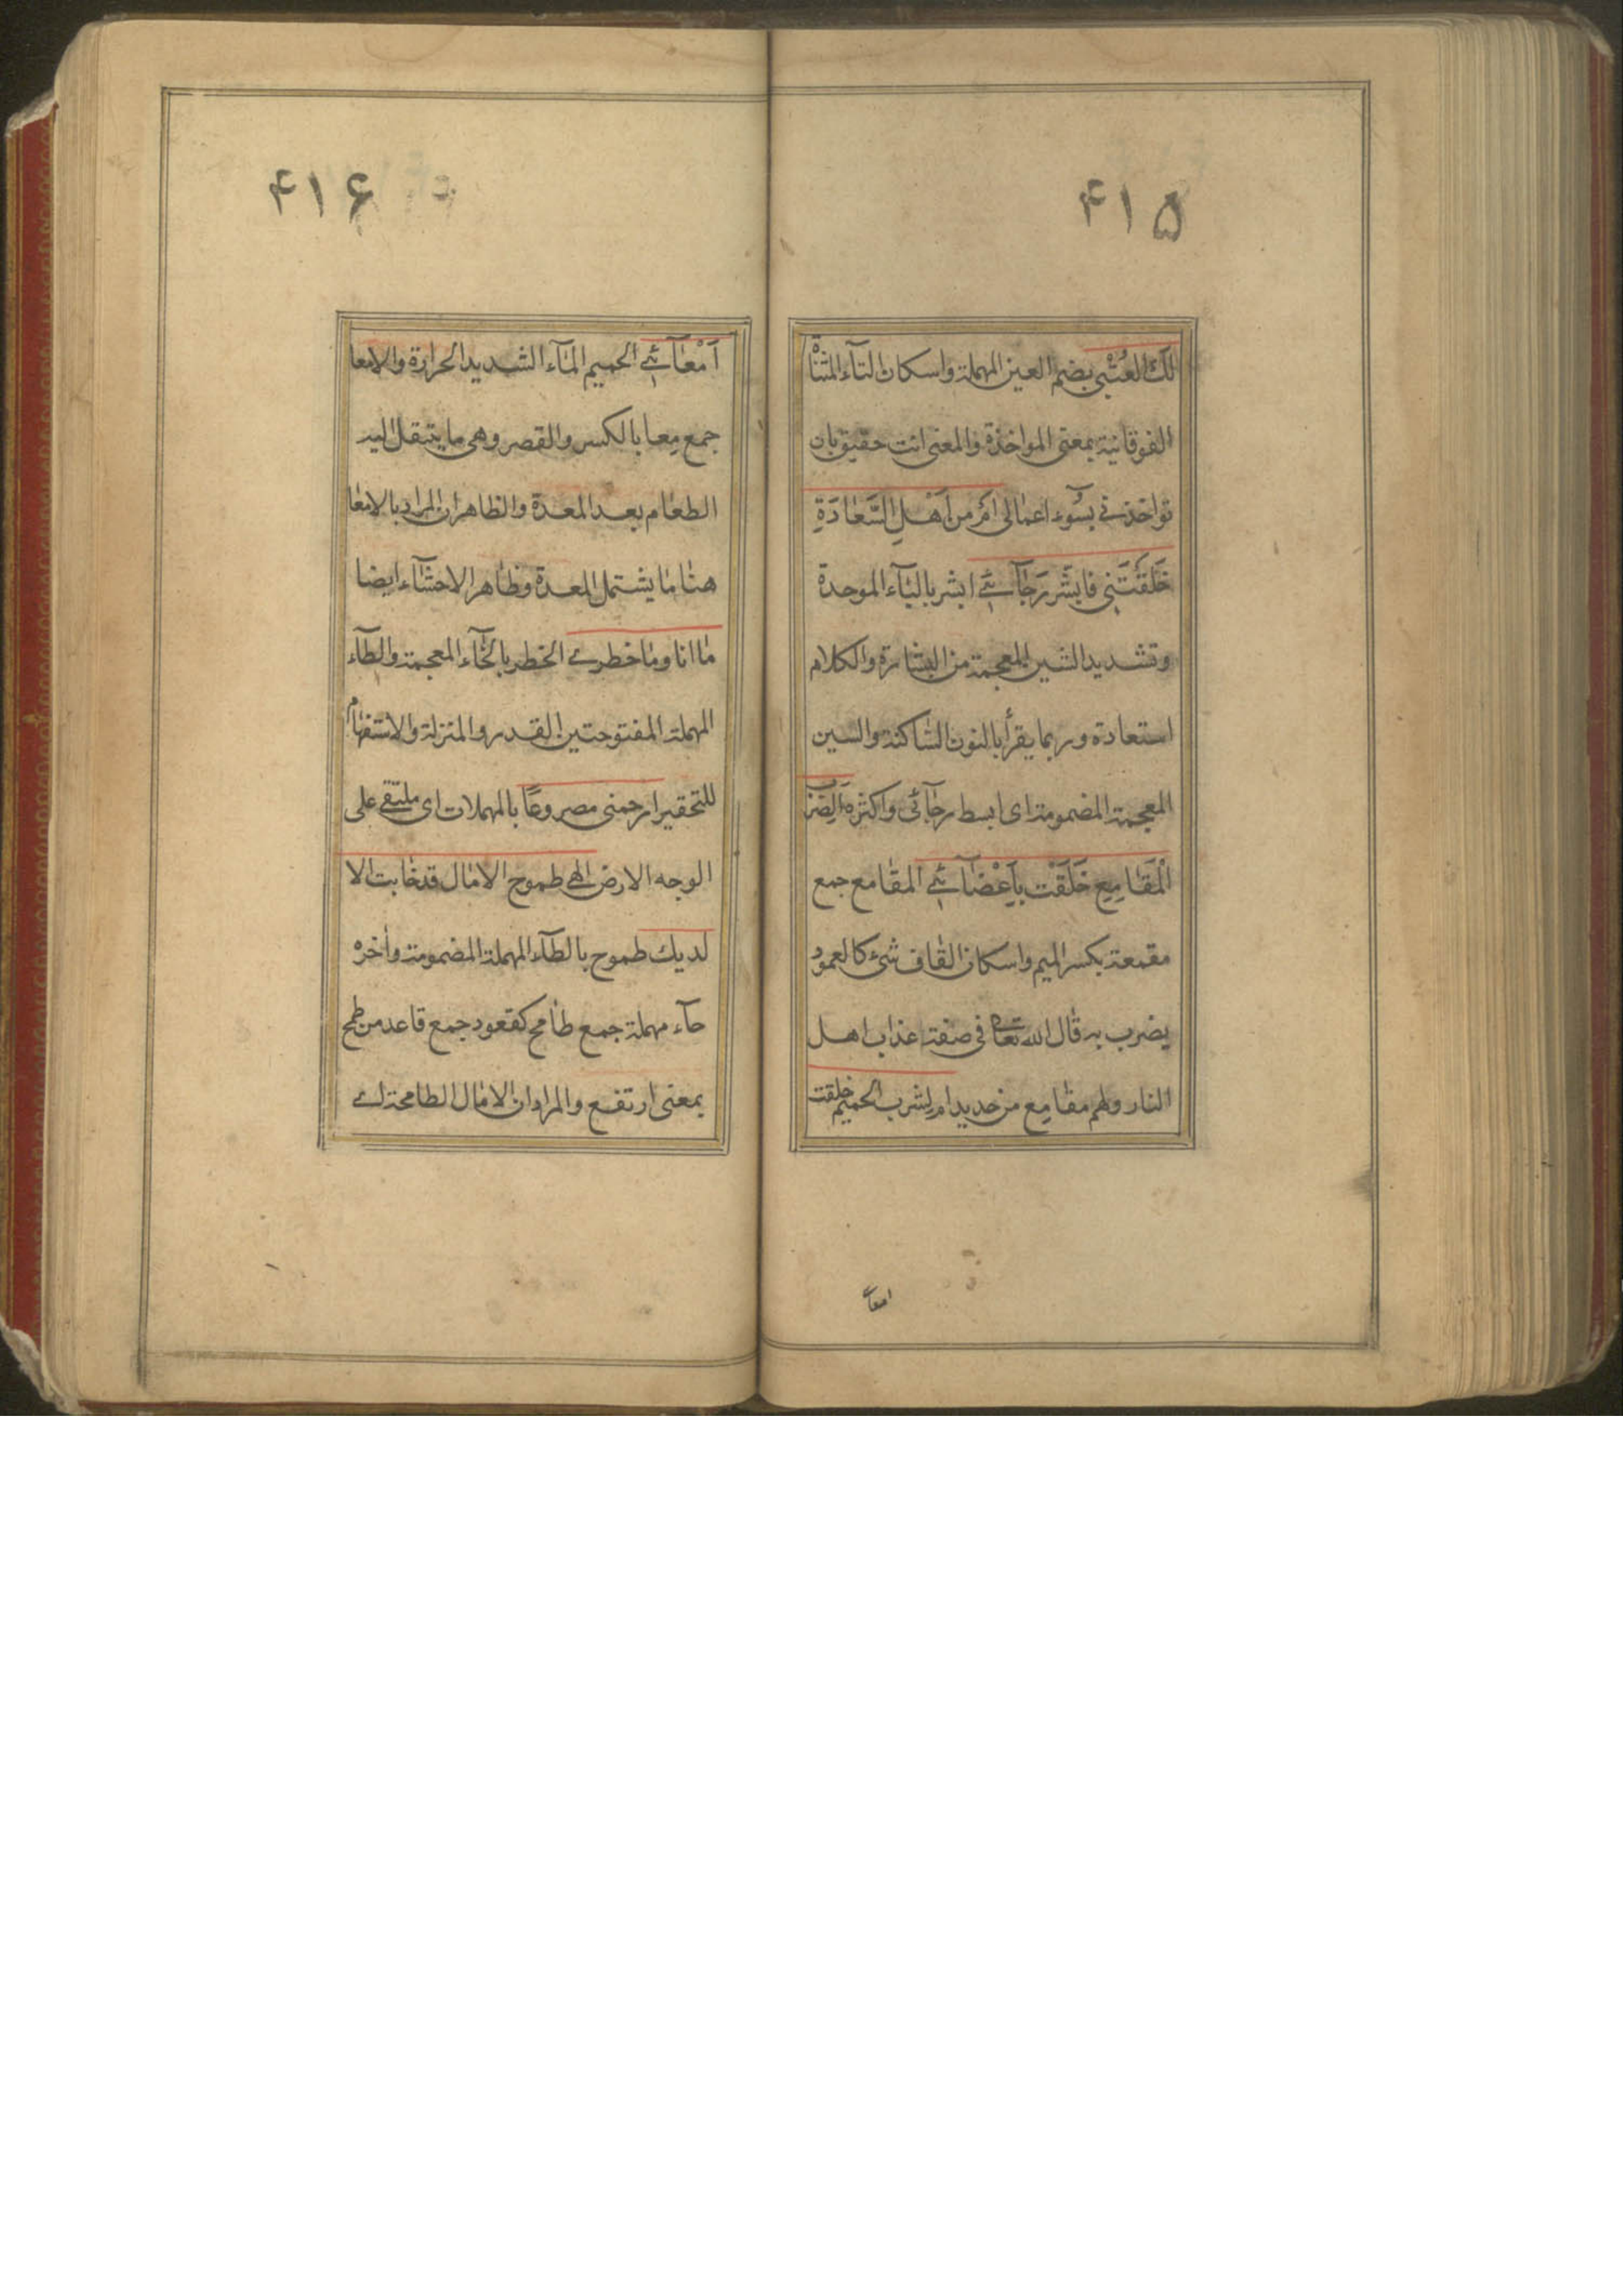 ۴۱۵
لَكَ الْعُتْبى بضم العين المهملة واسكان التآء المثناة
الفوقانية بمعنى المواخذة والمعنى انت حقيق بان
تواخذنى بسُوء اعمالى اَمْ مِن اَهْلِ السَّعَادَةِ
خَلَقْتَنِى فَابَشِّر رَجَآئِى ابشر بالبآء الموحدة
وتشديد الشين المعجمة من البشارة والكلام
استعادة وربما يقرأ بالنون الساكنة والسين
المعجمة المضمومة اى ابسط رجآئى واكثره اَلِضَرْبِ
الْمَقَامِعِ خَلَقْت بِاَعْضَآئِى المقامع جمع
مقمعة بكسر الميم واسكان القاف شئ كالعمود
يضرب به قال الله تعالى فى صفة عذاب اهل
النار ولهم مقامع من حديد ام لِشرب الحميم خلقت
امعآئى
۴۱۶
اَمْعَآئِى الحميم المآء الشديد الحرارة والامعا
جمع مِعا بالكسر والقصر وهى ما ينتقل اليه
الطعام بعد المعدة والظاهر ان المراد بالامعا
هنا ما يشتمل المعدة وظاهر الاحشآء ايضا
ما انا وما خطرى الخطر بالخآء المعجمة والطآء
المهملة المفتوحتين القدر والمنزلة والاستفهام
للتحقير ارحمنى مصروعًا بالمهملات اى ملتقى على
الوجه الارض الهى طموح الامال قد خابت الا
لديك طموح بالطآء المهملة المضمومة واخره
حآء مهملة جمع طامح كقعود جمع قاعد من طمح
بمعنى ارتفع والمراد ان الامال الطامحة اى